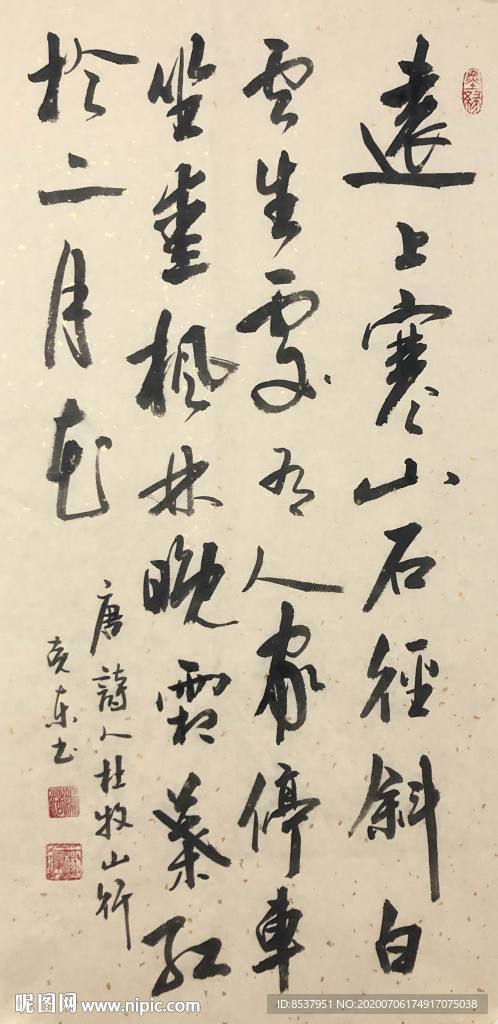 遠上寒山石徑斜白
雲生處有人家停車
坐愛楓林晚霜葉紅
於二月花
唐詩人杜牧山行
昵图网 www.nipic.com
ID:8537951 NO:20200706174917075038